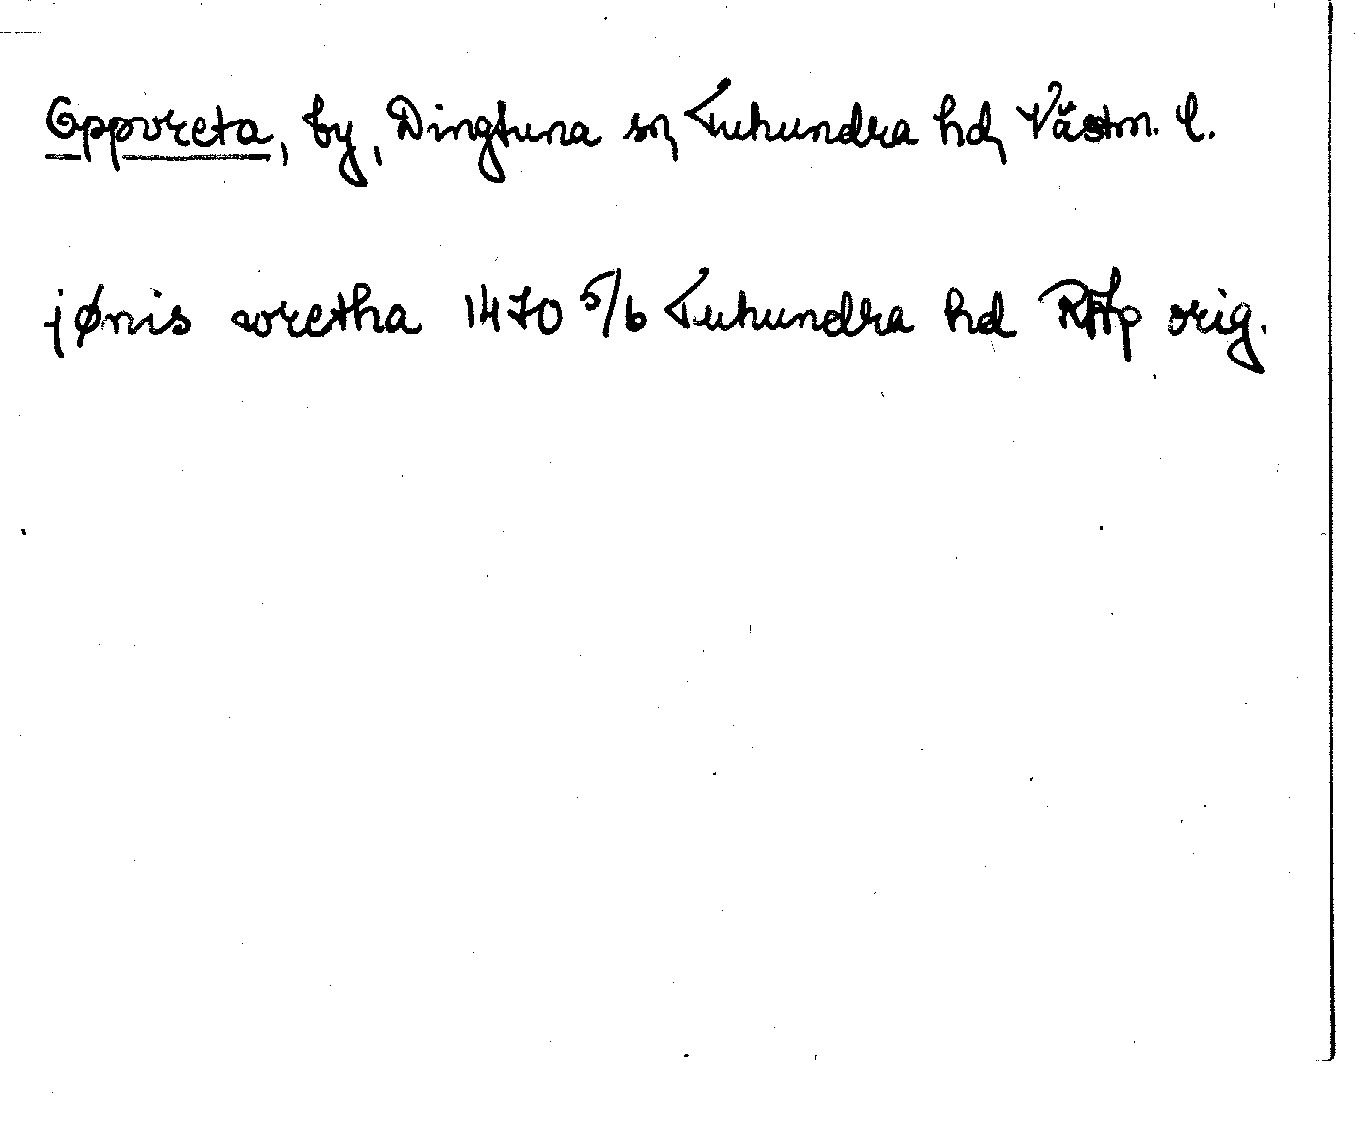 Oppvreta, by, Dingtuna sn, Tuhundra hd, Västm. l.
jønis wretha 1470 5/6 Tuhundra hd RAp orig.